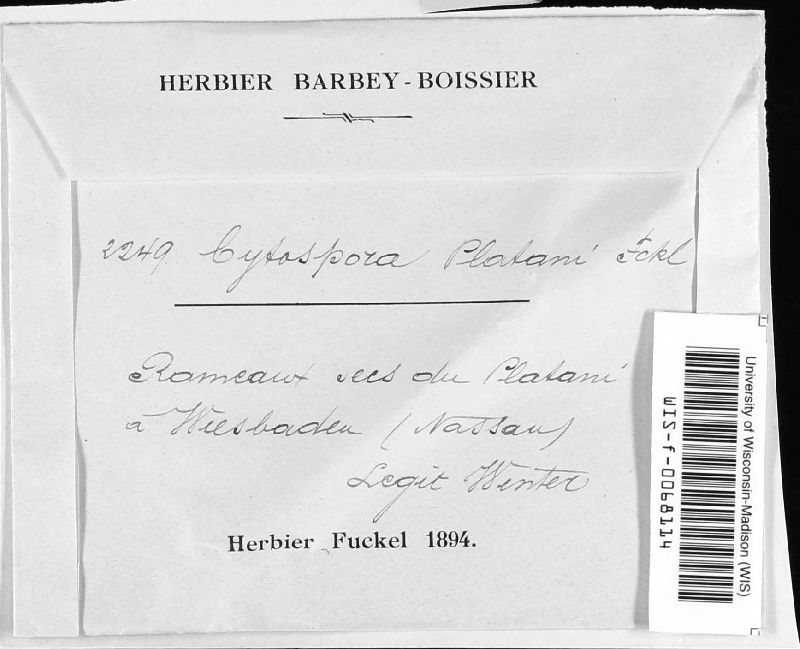 HERBIER BARBEY-BOISSIER
2249 Cytospora Platani Fckl
Rameaux secs du Platani
à Wiesbaden (Nassau)
Legit Winter
Herbier Fuckel 1894.
University of Wisconsin-Madison (WIS)
WIS-f-0068114